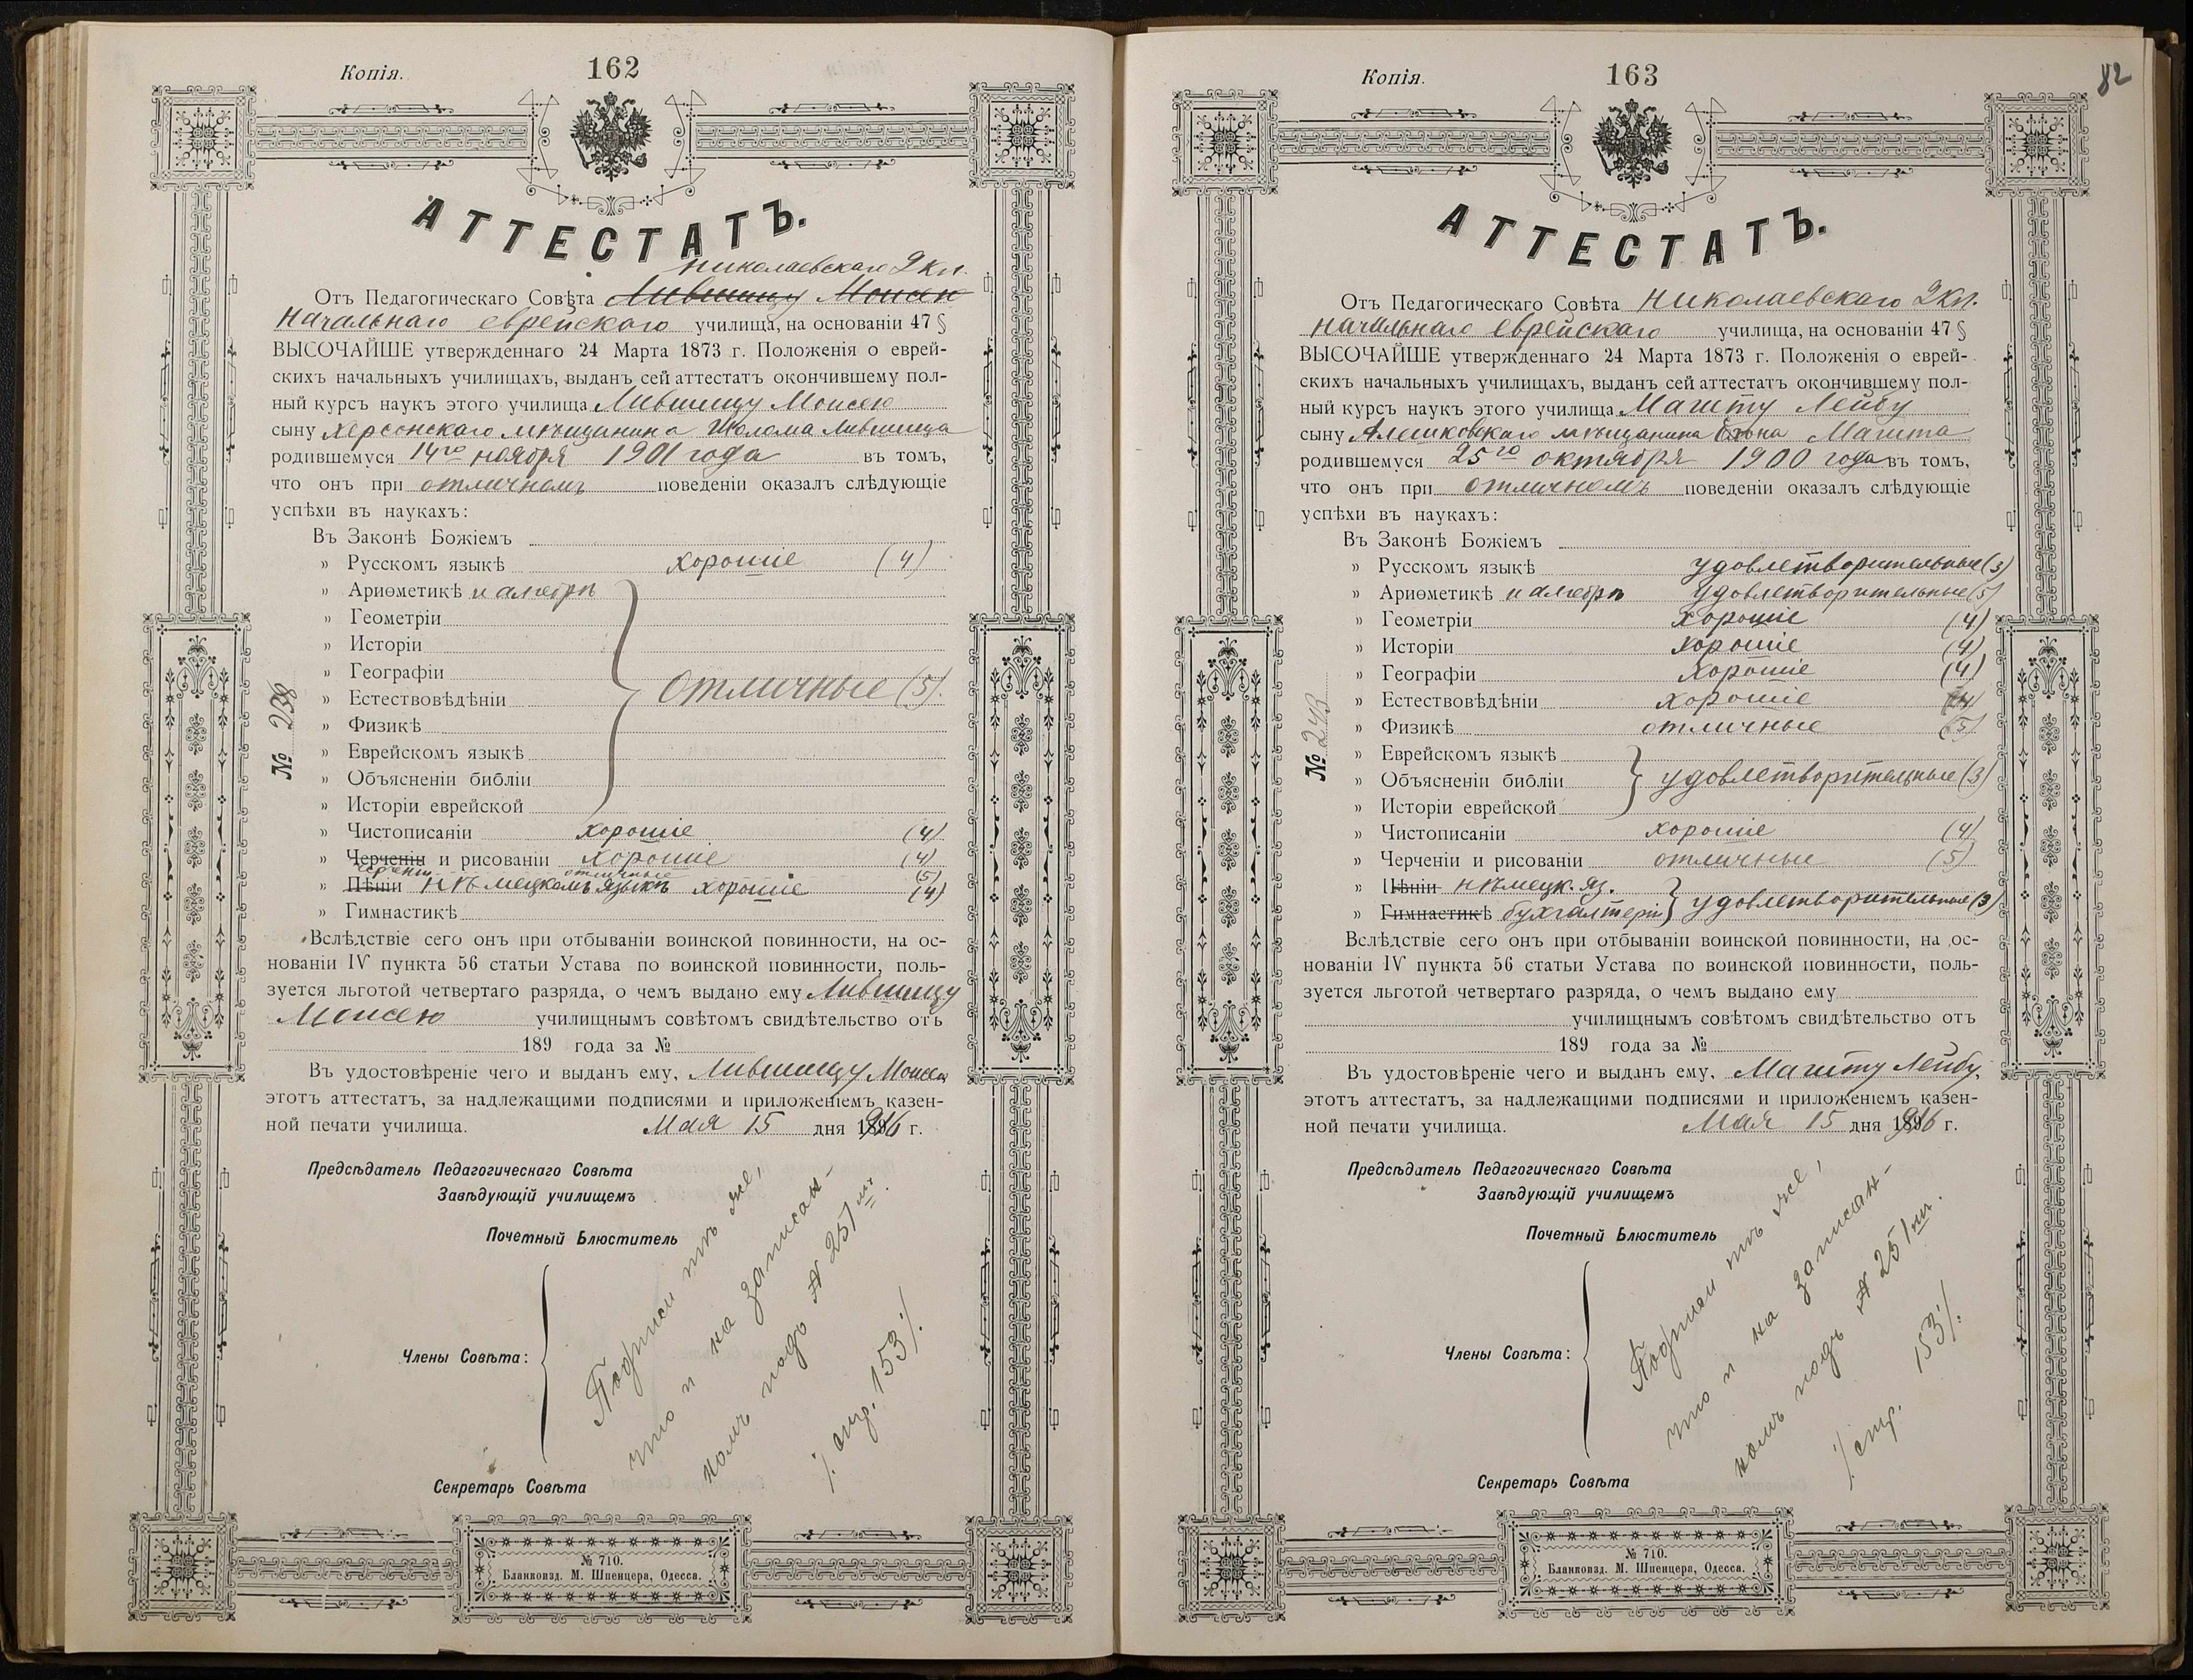 Копія.
162
АТТЕСТАТЪ.
николаевскаго 2 кл.
Отъ Педагогическаго Совѣта Лившицу Моисею
Начальнаго еврейскаго училища, на основаніи 47 §
ВЫСОЧАЙШЕ утвержденнаго 24 Марта 1873 г. Положенія о еврей-
скихъ начальныхъ училищахъ, выданъ сей аттестатъ окончившему пол-
ный курсъ наукъ этого училища Лившицу Моисею
сыну Херсонскаго мѣщанина Шолома Лившица
родившемуся 14го ноября 1901 года въ томъ,
что онъ при отличномъ поведеніи оказалъ слѣдующіе
успѣхи въ наукахъ:
Въ Законѣ Божіемъ
» Русскомъ языкѣ хорошіе (4)
» Ариѳметикѣ и алгебрѣ
» Геометріи
» Исторіи
» Географіи
отличные (5).
» Естествовѣдѣніи
» Физикѣ
» Еврейскомъ языкѣ
» Объясненіи библіи
» Исторіи еврейской
№ 238
» Чистописаніи хорошіе (4)
» Черченіи и рисованіи хорошіе (4)
черченіи отличные (5)
» Пѣніи нѣмецкомъ языкѣ хорошіе (4)
» Гимнастикѣ
Вслѣдствіе сего онъ при отбываніи воинской повинности, на ос-
нованіи IV пункта 56 статьи Устава по воинской повинности, поль-
зуется льготой четвертаго разряда, о чемъ выдано ему Лившицу
Моисею училищнымъ совѣтомъ свидѣтельство отъ
189 года за №
Въ удостовѣреніе чего и выданъ ему, Лившицу Моисею
этотъ аттестатъ, за надлежащими подписями и приложеніемъ казен-
ной печати училища. Мая 15 дня 1916 г.
Предсѣдатель Педагогическаго Совѣта
Завѣдующій училищемъ
Почетный Блюститель
Члены Совѣта:
Секретарь Совѣта
Подписи тѣ же,
что и на записан-
номъ подъ № 251
/. стр. 153 /.
№ 710.
Бланкоизд. М. Шпенцера, Одесса.
Копія.
163
82
АТТЕСТАТЪ.
Отъ Педагогическаго Совѣта Николаевскаго 2 кл.
начальнаго еврейскаго училища, на основаніи 47 §
ВЫСОЧАЙШЕ утвержденнаго 24 Марта 1873 г. Положенія о еврей-
скихъ начальныхъ училищахъ, выданъ сей аттестатъ окончившему пол-
ный курсъ наукъ этого училища Магиту Лейбу
сыну Алешковскаго мѣщанина Магита
родившемуся 25го октября 1900 года въ томъ,
что онъ при отличномъ поведеніи оказалъ слѣдующіе
успѣхи въ наукахъ:
Въ Законѣ Божіемъ
» Русскомъ языкѣ удовлетворительные (3)
» Ариѳметикѣ и алгебрѣ удовлетворительные
» Геометріи хорошіе (4)
» Исторіи хорошіе (4)
» Географіи хорошіе (4)
» Естествовѣдѣніи хорошіе (4)
» Физикѣ отличные (5)
» Еврейскомъ языкѣ
» Объясненіи библіи удовлетворительные (3)
» Исторіи еврейской
№ 243
» Чистописаніи хорошіе (4)
» Черченіи и рисованіи отличные (5)
» Пѣніи нѣмецк. яз.
» Гимнастикѣ бухгалтеріи удовлетворительные (3)
Вслѣдствіе сего онъ при отбываніи воинской повинности, на ос-
нованіи IV пункта 56 статьи Устава по воинской повинности, поль-
зуется льготой четвертаго разряда, о чемъ выдано ему
училищнымъ совѣтомъ свидѣтельство отъ
189 года за №
Въ удостовѣреніе чего и выданъ ему, Магиту Лейбу,
этотъ аттестатъ, за надлежащими подписями и приложеніемъ казен-
ной печати училища. Мая 15 дня 1916 г.
Предсѣдатель Педагогическаго Совѣта
Завѣдующій училищемъ
Почетный Блюститель
Члены Совѣта:
Секретарь Совѣта
Подписи тѣ же,
что и на записан-
номъ подъ № 251
/. стр. 153 /.
№ 710.
Бланкоизд. М. Шпенцера, Одесса.